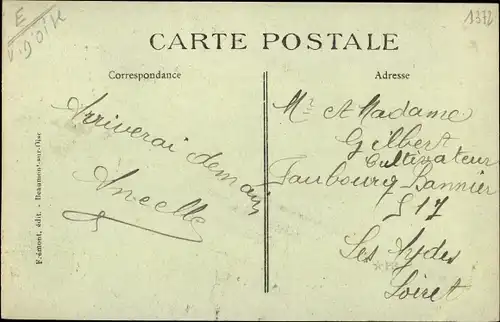 E
1372
CARTE POSTALE
Correspondance
Adresse
Arriverai demain
Ancelle
Mr et Madame
Gilbert
Cultivateur
Faubourg Bannier
517
Les Aydes
Loiret
Frémont, édit. - Beaumont-sur-Oise